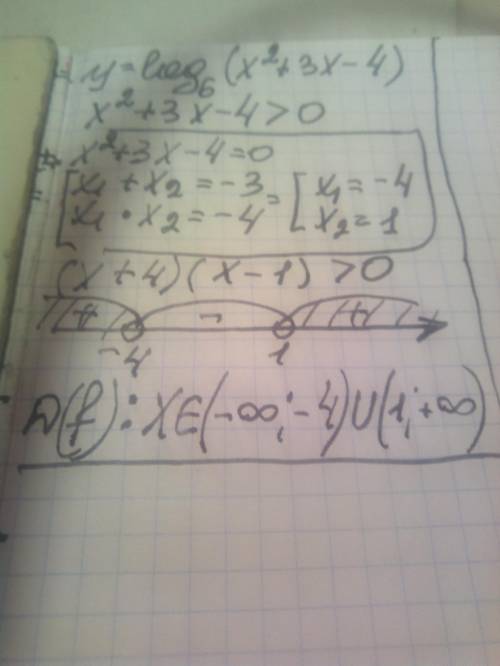 y = log₆ (x² + 3x - 4)
x² + 3x - 4 > 0
x² + 3x - 4 = 0
[ x₁ + x₂ = -3 = [ x₁ = -4
x₁ • x₂ = -4 x₂ = 1
(x + 4)(x - 1) > 0
+ - +
-4 1
D(f): X∈(-∞; -4)∪(1; +∞)